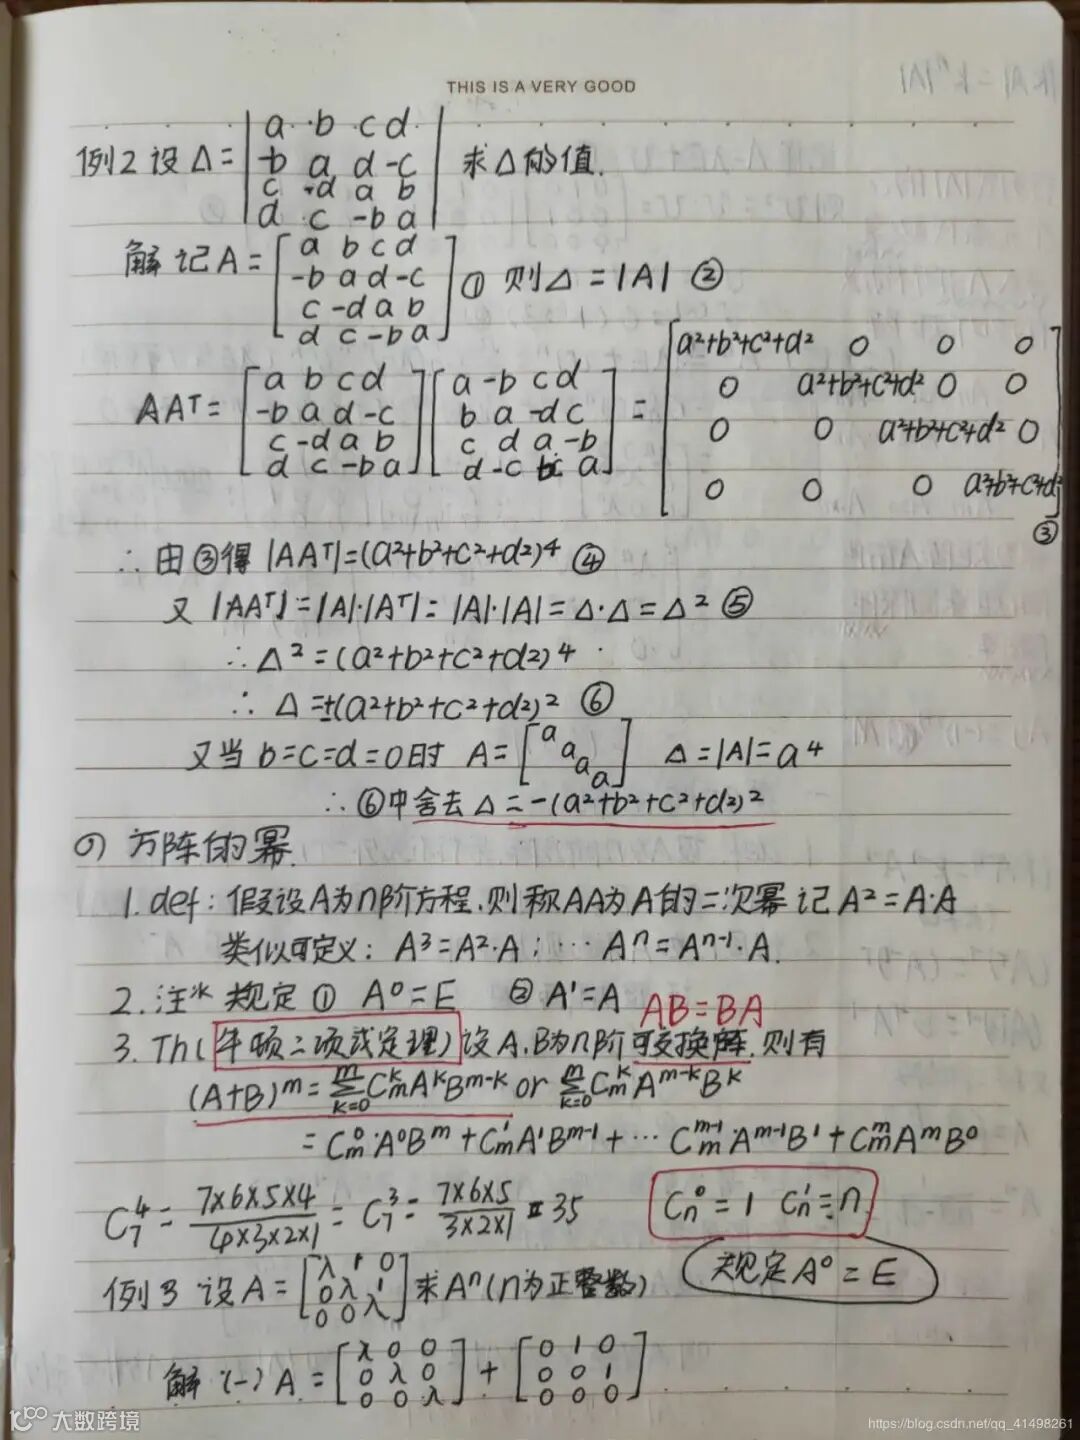 THIS IS A VERY GOOD
|kA|=kⁿ|A|
例2 设 Δ= | a b c d | 求Δ的值.
| -b a d -c |
| c -d a b |
| d c -b a |
解 记A= [ a b c d ] ① 则Δ=|A| ②
[ -b a d -c ]
[ c -d a b ]
[ d c -b a ]
AAᵀ= [ a b c d ] [ a -b c d ] = [ a²+b²+c²+d² 0 0 0 ]
[ -b a d -c ] [ b a -d c ] [ 0 a²+b²+c²+d² 0 0 ]
[ c -d a b ] [ c d a -b ] [ 0 0 a²+b²+c²+d² 0 ]
[ d c -b a ] [ d -c b a ] [ 0 0 0 a²+b²+c²+d² ] ③
∴由③得 |AAᵀ|=(a²+b²+c²+d²)⁴ ④
又 |AAᵀ|=|A|·|Aᵀ|=|A|·|A|=Δ·Δ=Δ² ⑤
∴Δ²=(a²+b²+c²+d²)⁴
∴ Δ=±(a²+b²+c²+d²)² ⑥
又当 b=c=d=0时 A= [ a a a a ] Δ=|A|=a⁴
∴⑥中舍去Δ=-(a²+b²+c²+d²)²
方阵的幂.
1.def:假设A为n阶方程,则称AA为A的二次幂 记A²=A·A
类似可定义: A³=A²·A; ··· Aⁿ=Aⁿ⁻¹·A.
2.注* 规定 ① A⁰=E ② A¹=A AB=BA
3.Th(牛顿二项式定理)设A.B为n阶可交换解,则有
(A+B)ᵐ=∑ₖ₌₀ᵐ Cₘᵏ Aᵏ Bᵐ⁻ᵏ or ∑ₖ₌₀ᵐ Cₘᵏ Aᵐ⁻ᵏ Bᵏ
=Cₘ⁰·A⁰Bᵐ+Cₘ¹A¹Bᵐ⁻¹+··· Cₘᵐ⁻¹·Aᵐ⁻¹B¹+CₘᵐAᵐB⁰
C₇⁴= 7×6×5×4 / 4×3×2×1 = C₇³= 7×6×5 / 3×2×1 =35 Cₙ⁰=1 Cₙ¹=n
规定A⁰=E
例3 设A= [ λ 1 0 ] 求Aⁿ(n为正整数)
[ 0 λ 1 ]
[ 0 0 λ ]
解 (一) A = [ λ 0 0 ] + [ 0 1 0 ]
[ 0 λ 0 ] [ 0 0 1 ]
[ 0 0 λ ] [ 0 0 0 ]
大数跨境
https://blog.csdn.net/qq_41498261